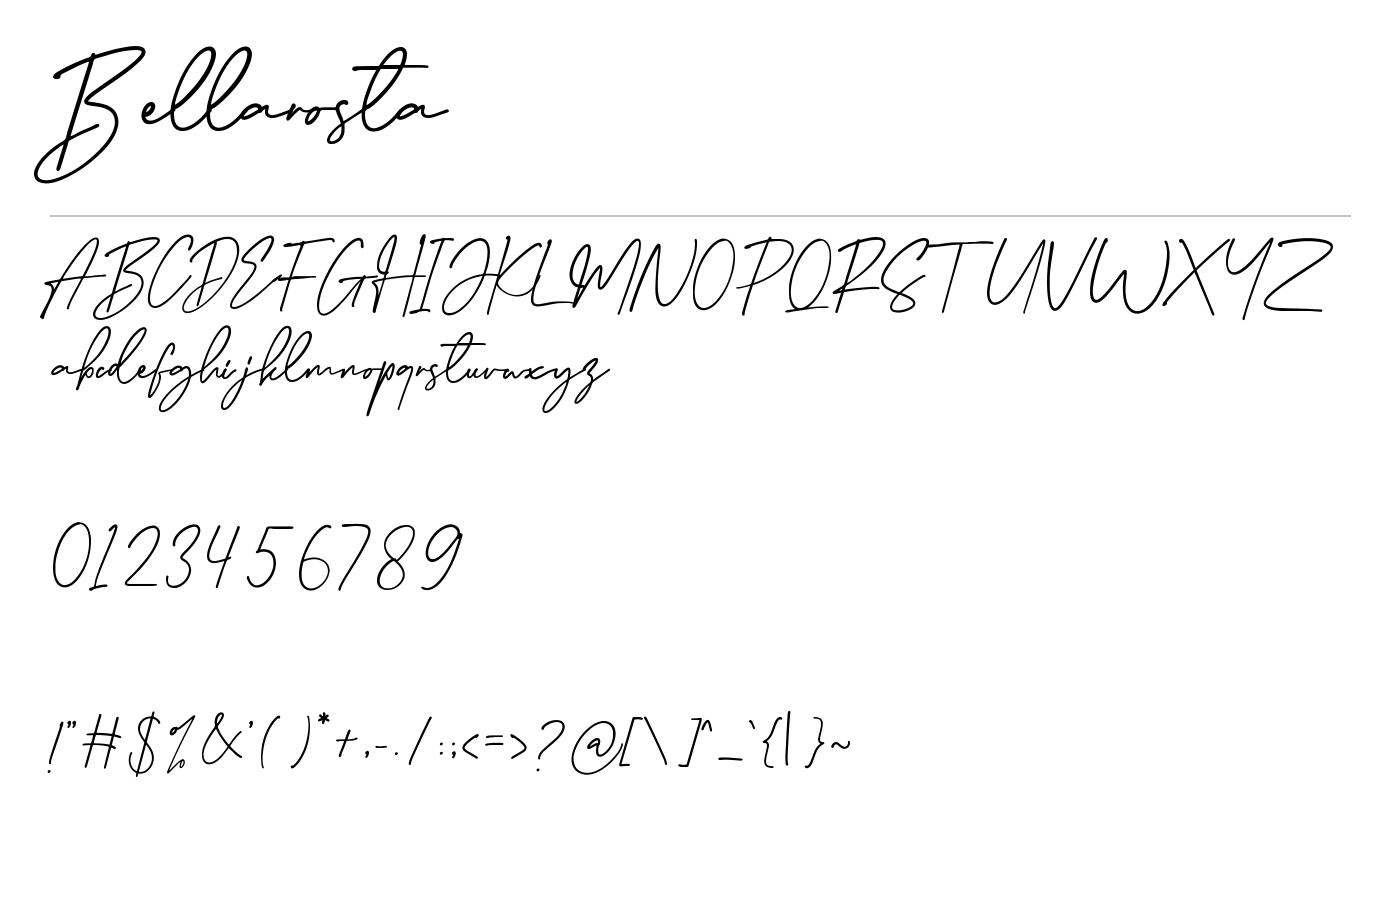 Bellarosta
ABCDEFGHIJKLMNOPQRSTUVWXYZ
abcdefghijklmnopqrstuvwxyz
0123456789
!"#$%&'()*+,-./:;<=>?@[\]^_`{|}~